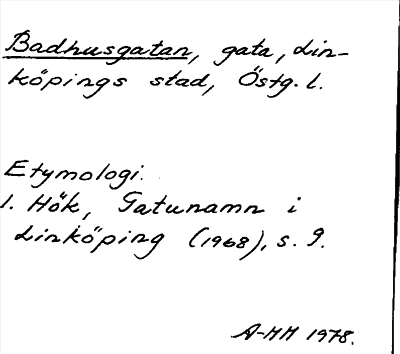 Badhusgatan, gata, Lin-
köpings stad, Östg. l.
Etymologi.
1. Hök, Gatunamn i
Linköping (1968), s. 9.
A-MH 1978.